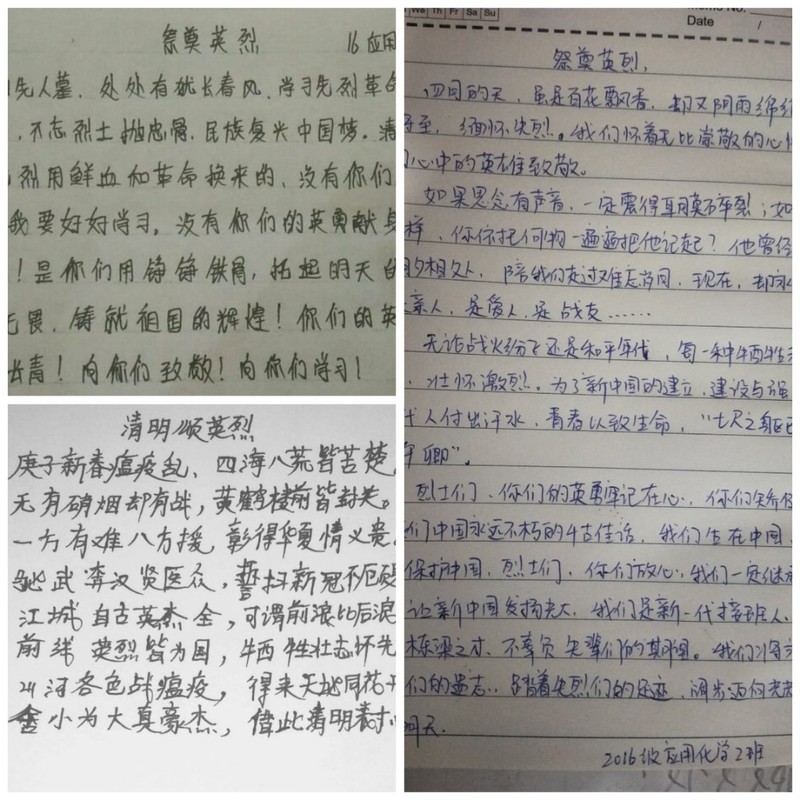 祭奠英烈
16应用
先人墓，处处有犹长春风。学习先烈革命
，不忘烈士抛忠骨，民族复兴中国梦。清
烈用鲜血和革命换来的、没有你们
我要好好学习。没有你们的英勇献身
！是你们用铮铮铁骨，拓起明天的
无畏，铸就祖国的辉煌！你们的英
长青！向你们致敬！向你们学习！
清明颂英烈
庚子新春瘟疫乱、四海八荒皆苦楚
无有硝烟却有战，黄鹤楼前皆封关。
一方有难八方援，彰得华夏情义贵
驰武奔汉贤医众，誓扫新冠不
江城自古英杰全，可谓前浪比后浪
前线英烈皆为国，牺牲壮志怀先
山河各色战瘟疫，得来天地同花
舍小为大真豪杰，借此清明表
We Th Fr Sa Su
Memo No.
Date /
祭奠英烈
四月的天，虽是百花飘香，却又阴雨绵
至，缅怀先烈。我们怀着无比崇敬的心
心中的英雄致敬。
如果思念有声音，一定震得耳膜碎裂；如
样，你依托何物一遍遍把他记起？他曾经
夕相处，陪我们走过难忘岁月，现在，却永
亲人，是爱人，是战友……
无论战火纷飞还是和平年代，每一种牺牲
壮怀激烈。为了新中国的建立，建设与强
代人付出汗水，青春以致生命，“七尺之躯已
卿”。
烈士们、你们的英勇牢记在心、你们
们中国永远不朽的千古佳话，我们生在中国，
保护中国，烈士们，你们放心，我们一定继承
让新中国发扬光大，我们是新一代接班人、
栋梁之才、不辜负先辈们的期望。我们将
们的遗志，踏着先烈们的足迹，阔步迈向
明天。
2016级应用化学2班